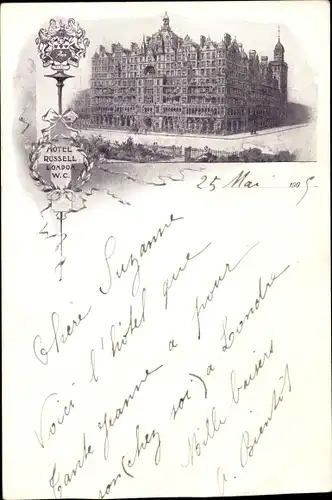 HOTEL
RUSSELL
LONDON
W.C.
25 Mai 1905
Chère Suzanne
Voici l'hôtel que
tante Jeanne a pour
son (chez soi) a Londre
Mille baisers
A Bientôt